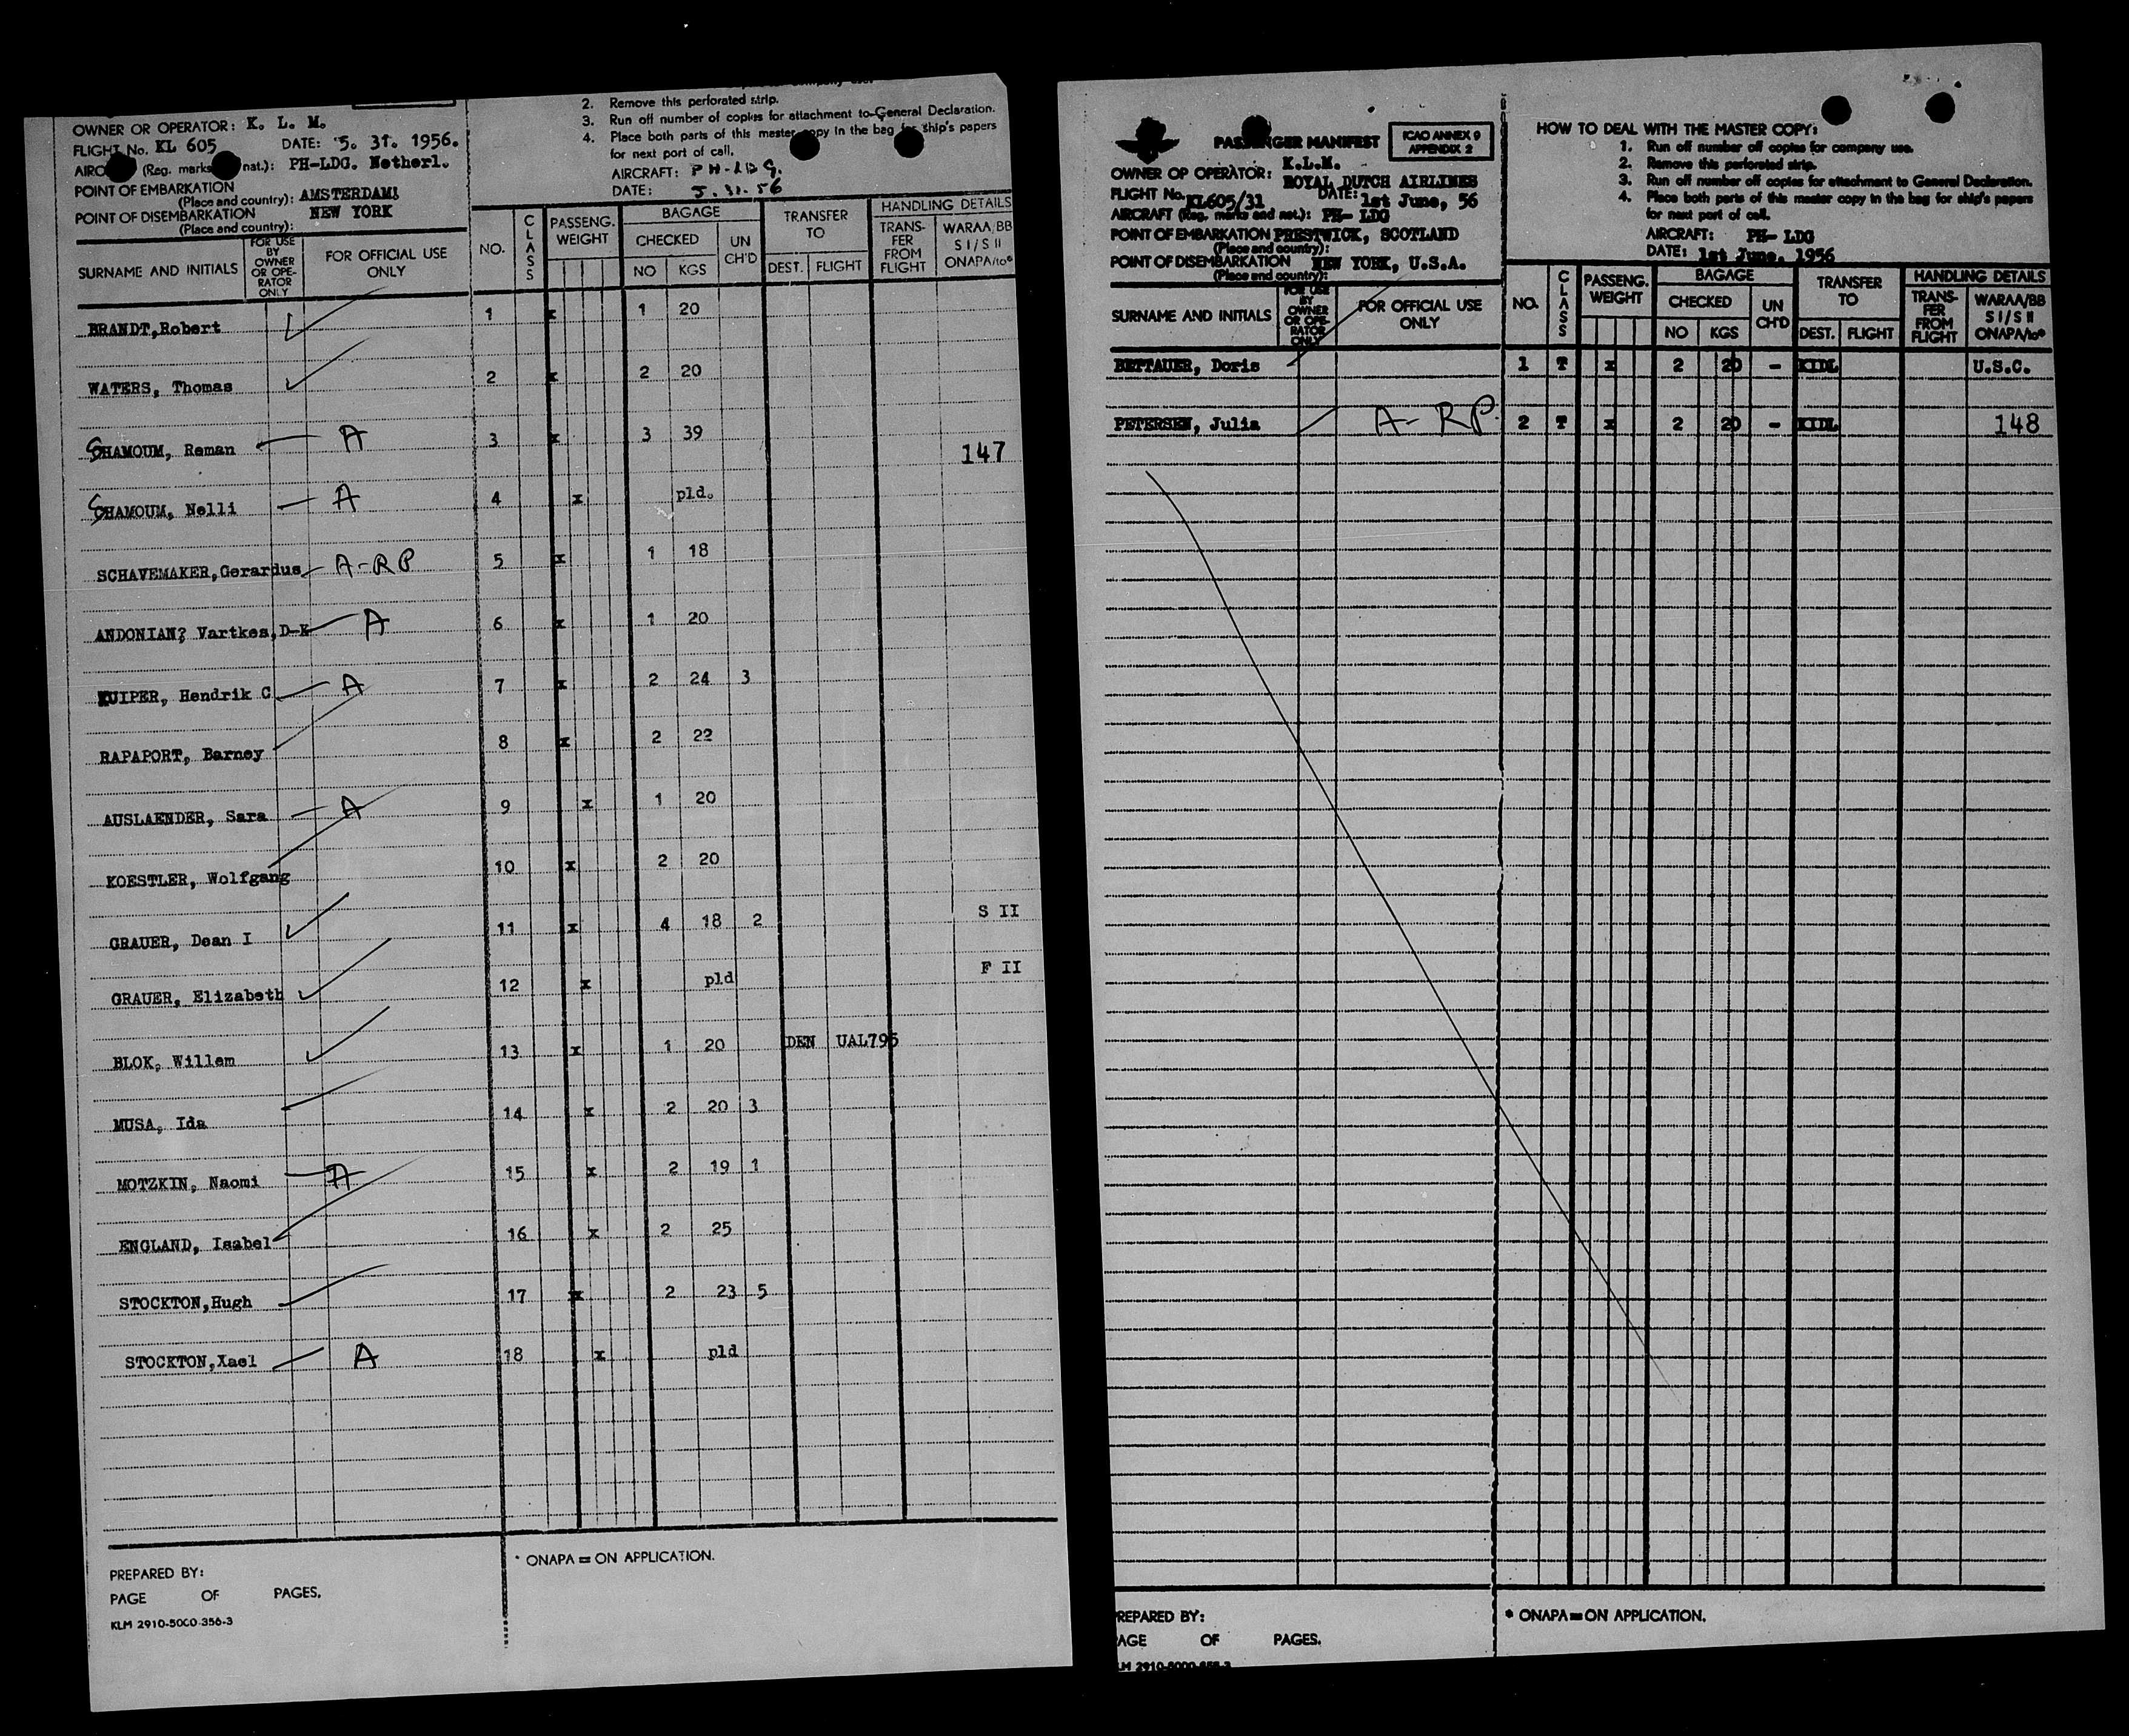 2. Remove this perforated strip.
3. Run off number of copies for attachment to General Declaration.
4. Place both parts of this master copy in the bag for ship's papers
for next port of call.
AIRCRAFT: PH-LDG.
DATE: 5.31.56
OWNER OR OPERATOR: K. L. M.
FLIGHT No. KL 605 DATE: 5. 31. 1956.
(Reg. marks nat.): PH-LDG. Netherl.
POINT OF EMBARKATION
(Place and country): AMSTERDAM
POINT OF DISEMBARKATION NEW YORK
(Place and country):
SURNAME AND INITIALS FOR USE BY OWNER OR OPE- RATOR ONLY FOR OFFICIAL USE ONLY NO. CLASS PASSENG. WEIGHT BAGAGE CHECKED NO KGS UN CH'D TRANSFER TO DEST. FLIGHT HANDLING DETAILS TRANS- FER FROM FLIGHT WARAA/BB S I/S II ONAPA/to*
BRANDT,Robert 1 x 1 20
WATERS, Thomas 2 x 2 20
CHAMOUM, Reman A 3 x 3 39 147
CHAMOUM, Nelli A 4 x pld.
SCHAVEMAKER,Gerardus A-RP 5 x 1 18
ANDONIAN? Vartkes,D-K A 6 x 1 20
KUIPER, Hendrik C A 7 x 2 24 3
RAPAPORT, Barney 8 x 2 22
AUSLAENDER, Sara A 9 x 1 20
KOESTLER, Wolfgang 10 x 2 20
GRAUER, Dean I 11 x 4 18 2 S II
GRAUER, Elizabeth 12 x pld F II
BLOK, Willem 13 x 1 20 DEN UAL795
MUSA, Ida 14 x 2 20 3
MOTZKIN, Naomi A 15 x 2 19 1
ENGLAND, Isabel 16 x 2 25
STOCKTON,Hugh 17 x 2 23 5
STOCKTON,Xael A 18 x pld
* ONAPA = ON APPLICATION.
PREPARED BY:
PAGE OF PAGES.
KLM 2910-5000-356-3
PASSENGER MANIFEST
ICAO ANNEX 9
APPENDIX 2
OWNER OP OPERATOR: K.L.M.
ROYAL DUTCH AIRLINES
FLIGHT No. KL605/31 DATE: 1st June, 56
AIRCRAFT (Reg. marks and nat.): PH- LDG
POINT OF EMBARKATION PRESTWICK, SCOTLAND
(Place and country):
POINT OF DISEMBARKATION NEW YORK, U.S.A.
(Place and country):
HOW TO DEAL WITH THE MASTER COPY:
1. Run off number off copies for company use.
2. Remove this perforated strip.
3. Run off number off copies for attachment to General Declaration.
4. Place both parts of this master copy in the bag for ship's papers
for next port of call.
AIRCRAFT: PH- LDG
DATE: 1st June, 1956
SURNAME AND INITIALS FOR USE BY OWNER OR OPE- RATOR ONLY FOR OFFICIAL USE ONLY NO. CLASS PASSENG. WEIGHT BAGAGE CHECKED NO KGS UN CH'D TRANSFER TO DEST. FLIGHT HANDLING DETAILS TRANS- FER FROM FLIGHT WARAA/BB S I/S II ONAPA/to*
BETTAUER, Doris 1 T x 2 20 - KIDL U.S.C.
PETERSEN, Julia A-RP. 2 T x 2 20 - KIDL 148
* ONAPA = ON APPLICATION.
REPARED BY:
AGE OF PAGES.